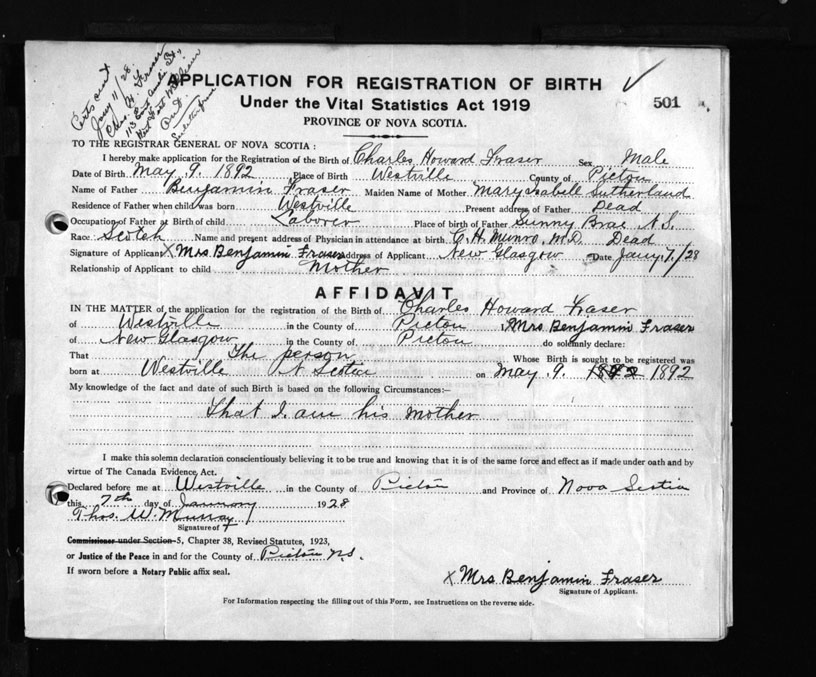 Certs sent
Jany 11/28.
Chas. H. Fraser
113 East St.,
Fort William
Ont
APPLICATION FOR REGISTRATION OF BIRTH
Under the Vital Statistics Act 1919
501
PROVINCE OF NOVA SCOTIA.
TO THE REGISTRAR GENERAL OF NOVA SCOTIA:
I hereby make application for the Registration of the Birth of Charles Howard Fraser Sex Male
Date of Birth May 9. 1892 Place of Birth Westville County of Pictou
Name of Father Benjamin Fraser Maiden Name of Mother Mary Isabell Sutherland
Residence of Father when child was born Westville Present address of Father Dead
Occupation of Father at Birth of child Laborer Place of birth of Father Sunny Brae N.S.
Race: Scotch Name and present address of Physician in attendance at birth C. H. Munro, M.D. Dead
Signature of Applicant X Mrs Benjamin Fraser address of Applicant New Glasgow Date Jany 7/28
Relationship of Applicant to child Mother
AFFIDAVIT
IN THE MATTER of the application for the registration of the Birth of Charles Howard Fraser
of Westville in the County of Pictou I Mrs Benjamin Fraser
of New Glasgow in the County of Pictou do solemnly declare:
That The person Whose Birth is sought to be registered was
born at Westville N Scotia on May 9. 1892
My knowledge of the fact and date of such Birth is based on the following Circumstances:—
That I am his Mother
I make this solemn declaration conscientiously believing it to be true and knowing that it is of the same force and effect as if made under oath and by
virtue of The Canada Evidence Act.
Declared before me at Westville in the County of Pictou and Province of Nova Scotia
this 7th day of January 1928
Thos. W. Murray
Signature of
Commissioner under Section 5, Chapter 38, Revised Statutes, 1923,
or Justice of the Peace in and for the County of Pictou N.S.
If sworn before a Notary Public affix seal.
X Mrs Benjamin Fraser
Signature of Applicant.
For Information respecting the filling out of this Form, see Instructions on the reverse side.